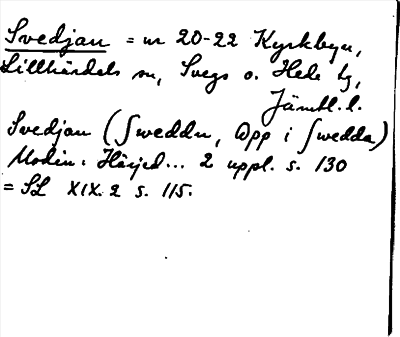 Svedjan = nr 20-22 Kyrkbyn,
Lillhärdals sn, Svegs o. Hede tg,
Jämtl. l.
Svedjan (ʃweddn, Opp i ʃwedda)
Modin: Härjed... 2 uppl. s. 130
= SL XIX. 2 s. 115.